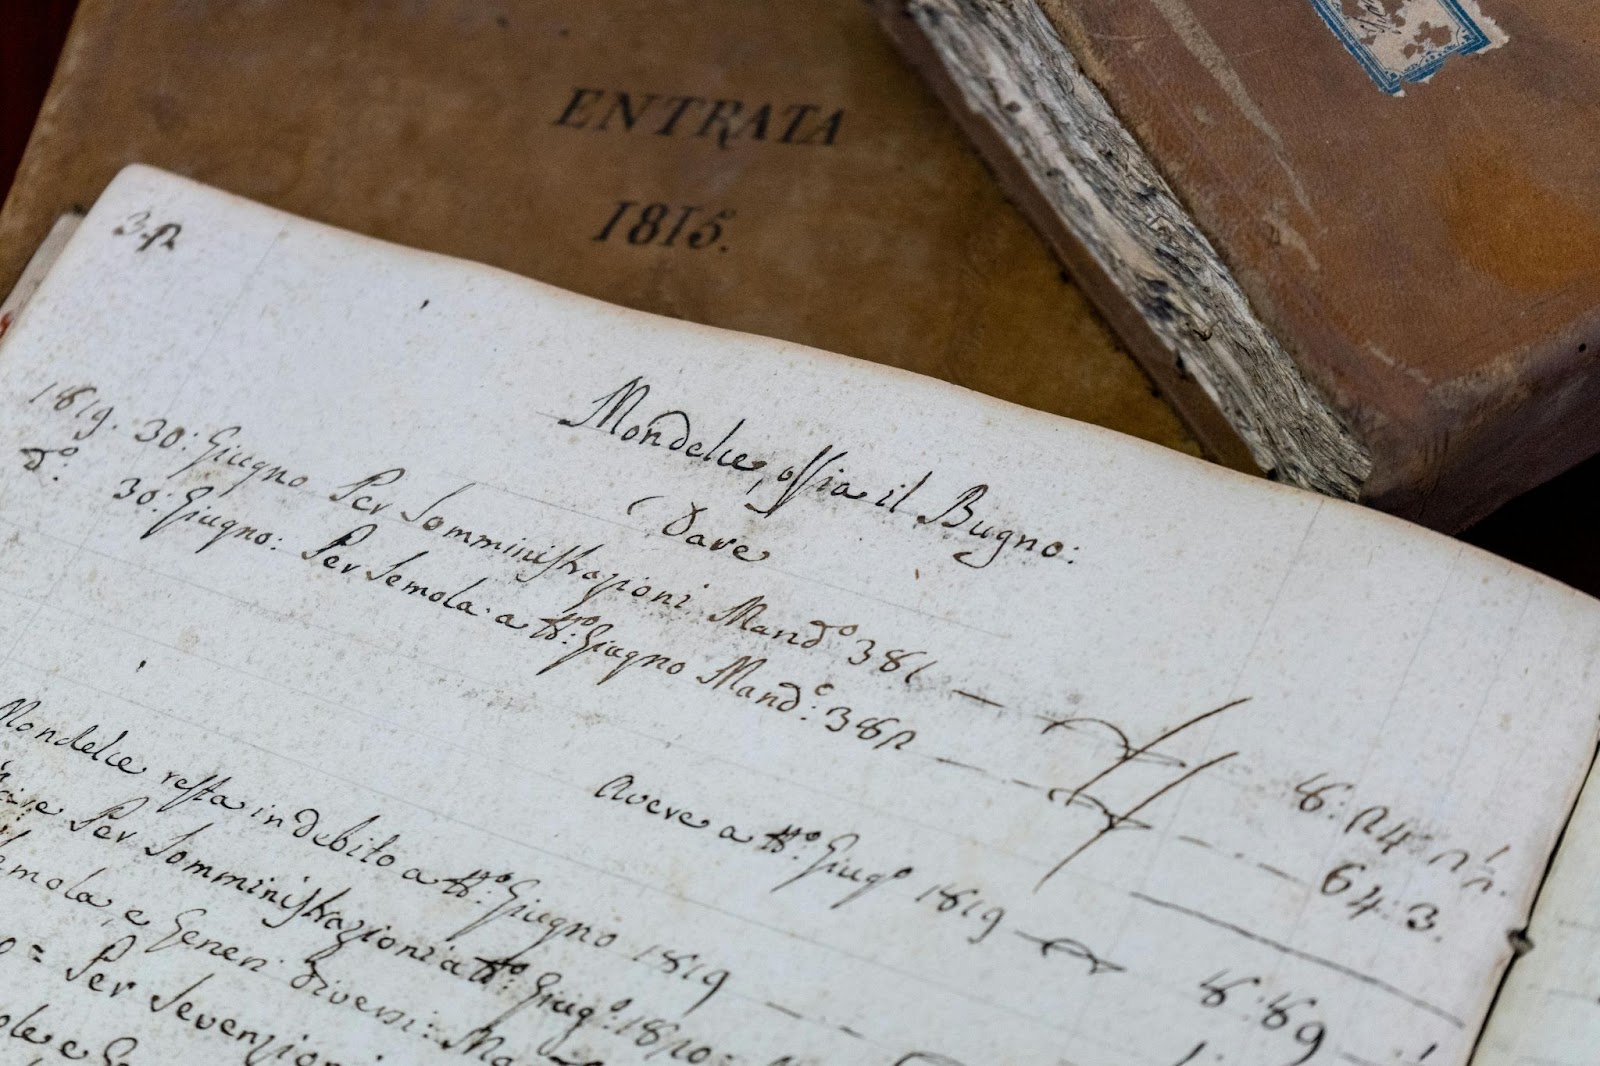 ENTRATA
1815.
32
Mondelce, ossia il Bugno:
Dare
1819. 30: Giugno Per Somministrazioni Mand.º 381
d.º: 30: Giugno: Per Semola a tt.º: Giugno Mand.º: 382 64: 3.
Avere a tt.º: Giug.º 1819
Mondelce resta in debito a tt.º: Giugno 1819
Per Somministrazioni a tt.º: Giug.º: 1820
e Generi diversi:
= Per Sovenzioni